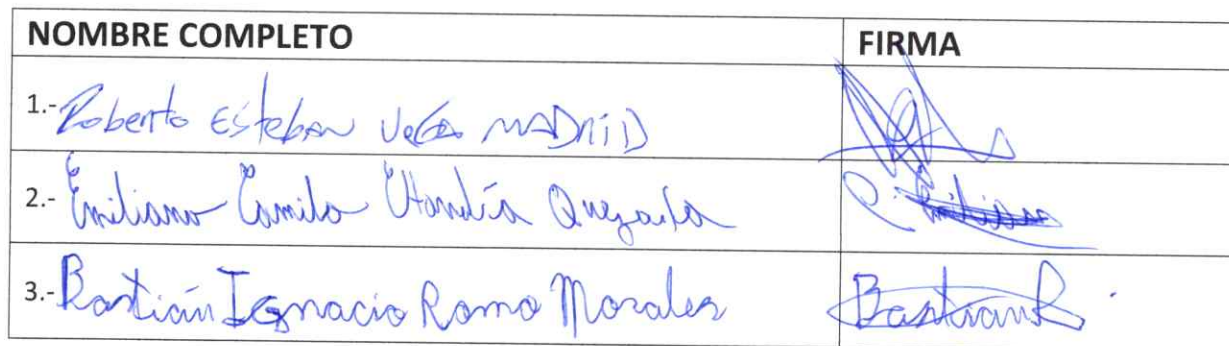 NOMBRE COMPLETO FIRMA
1.- Roberto Esteban Vega MADRID
2.- Emiliano Camilo Quezada
3.- Bastián Ignacio Romo Morales BastianR